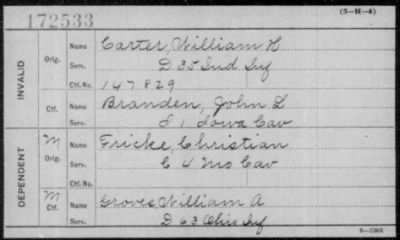 172533
(3-H-4)
INVALID
Orig. Name Carter, William H
Serv. D 35 Ind Inf
Ctf. No. 147829
Ctf. Name Branden, John L
Serv. I 1 Iowa Cav
DEPENDENT
M Orig. Name Fricke, Christian
Serv. C 4 Mo Cav
Ctf. No.
M Ctf. Name Groves, William A
Serv. D 63 Ohio Inf